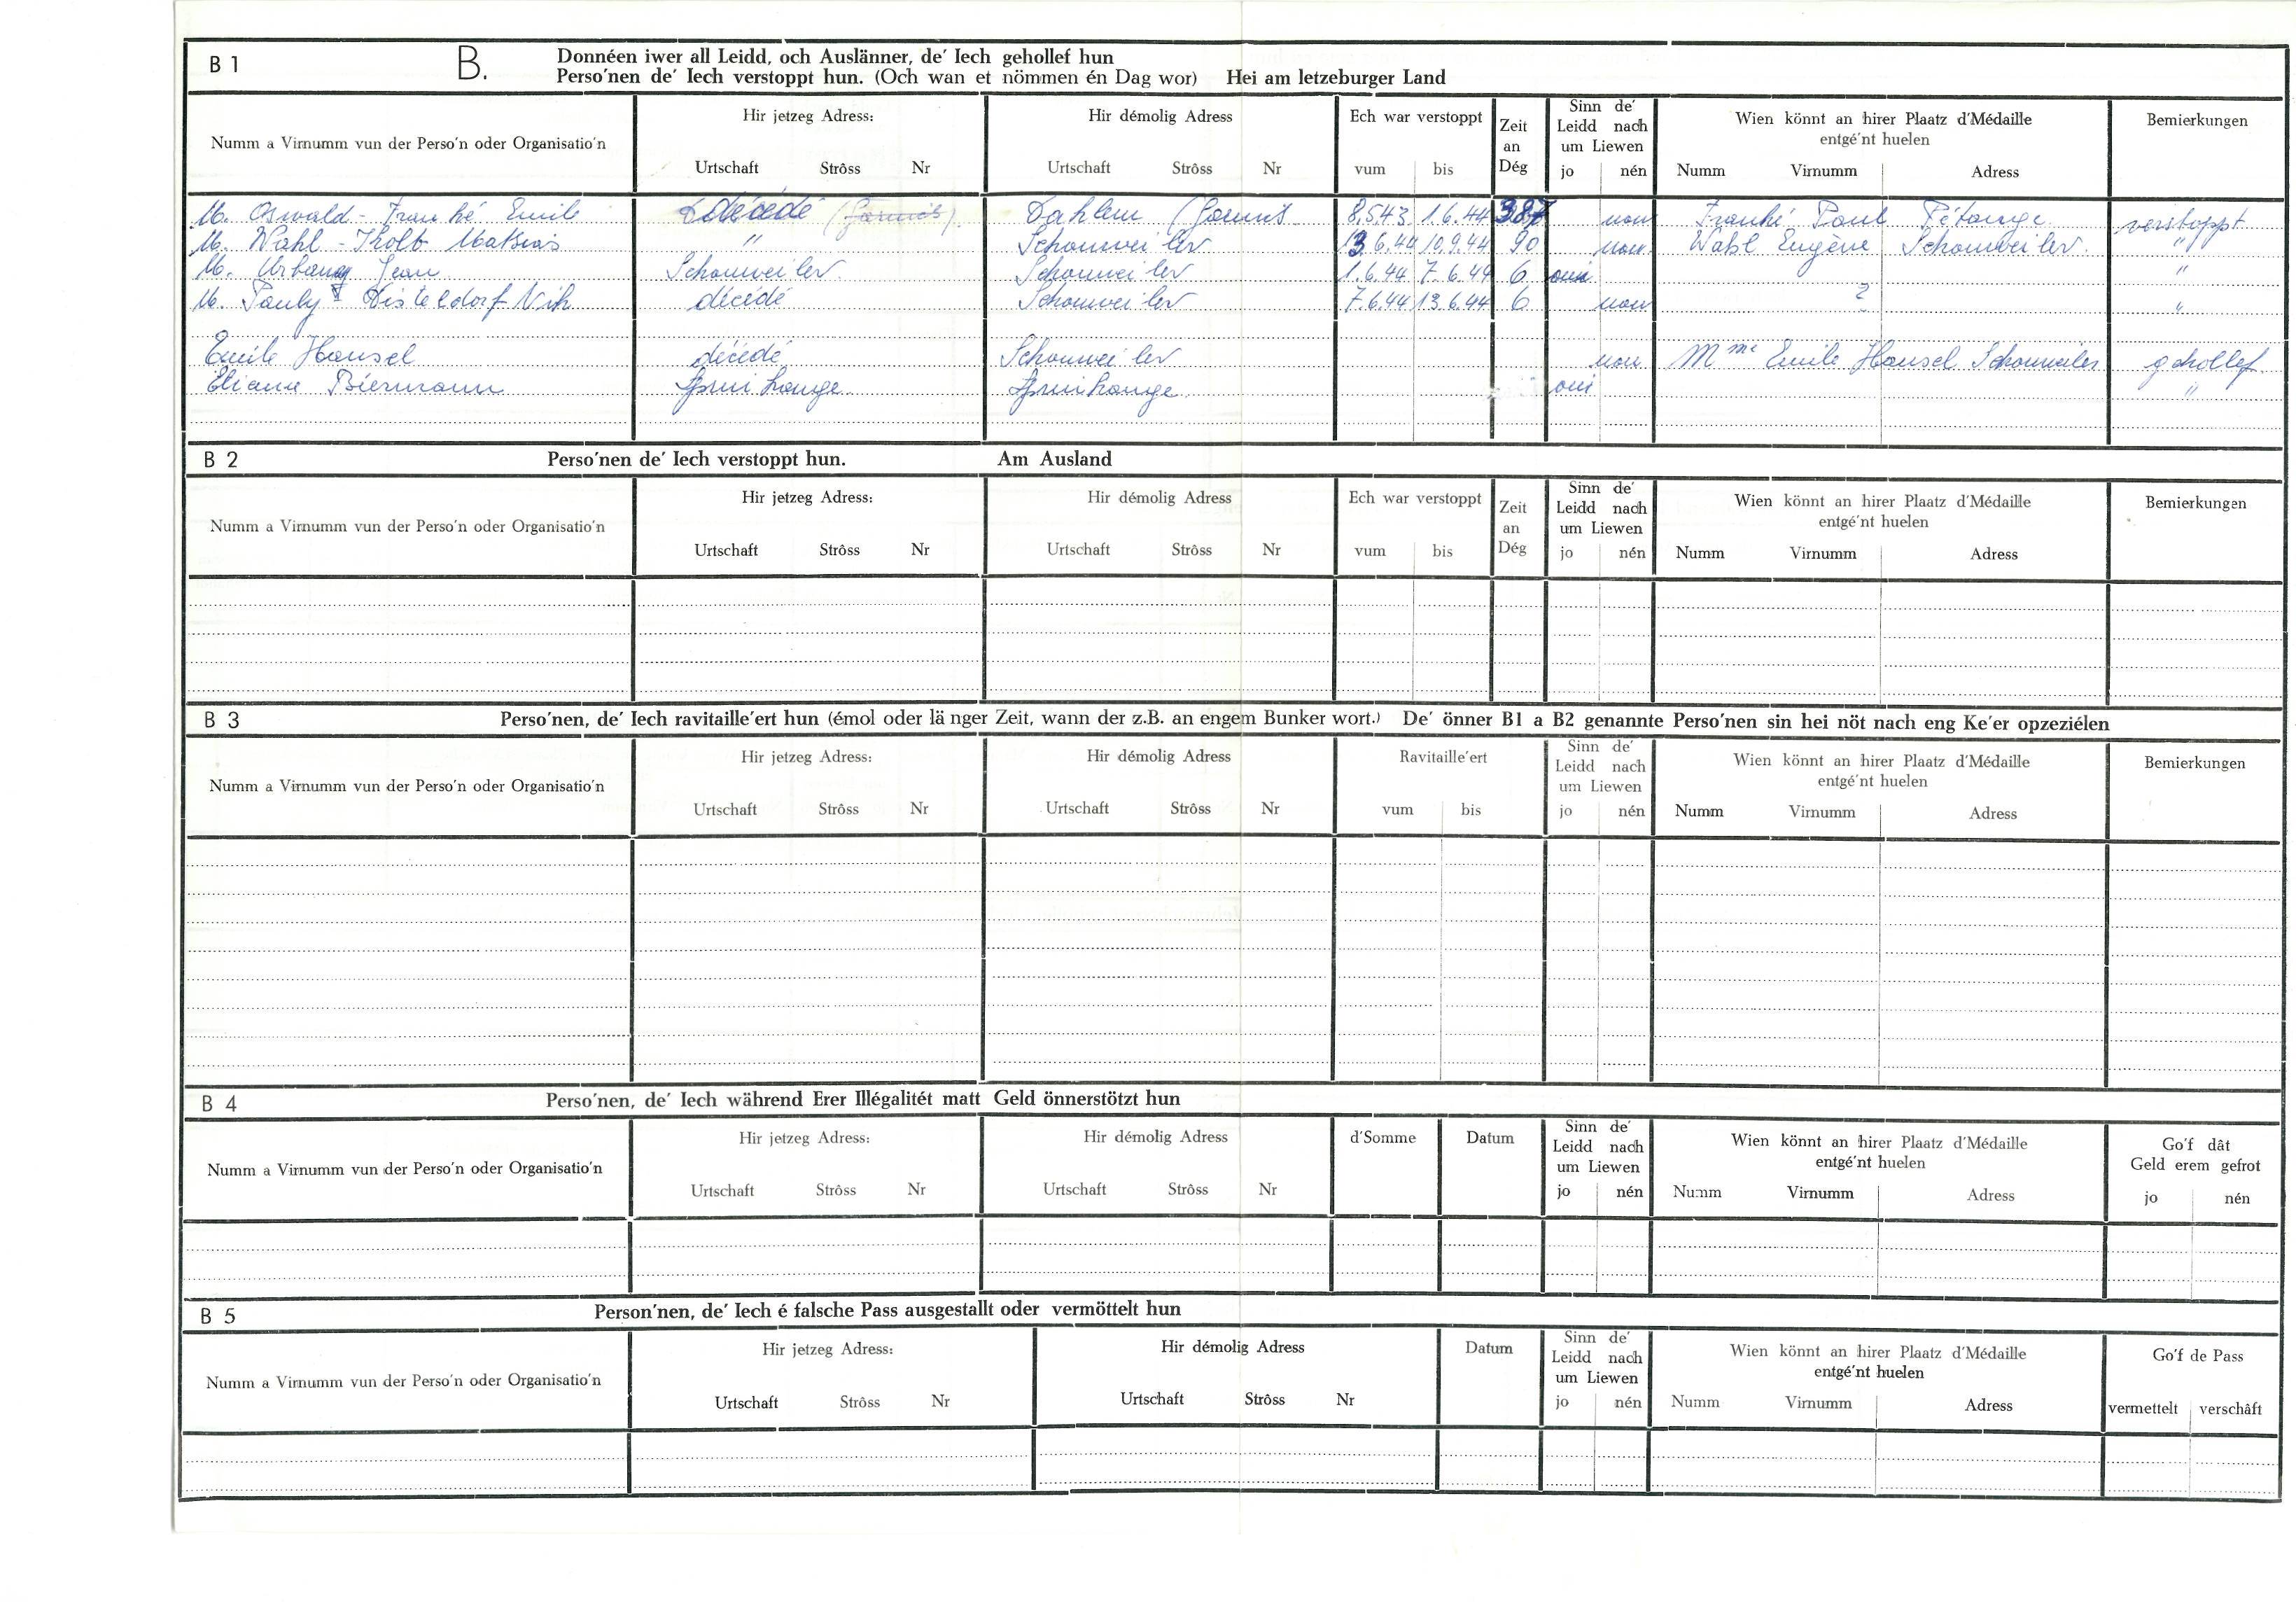 B 1 B. Donnéen iwer all Leidd, och Auslänner, de' Iech gehollef hun
Perso'nen de' Iech verstoppt hun. (Och wan et nömmen én Dag wor) Hei am letzeburger Land
Numm a Virnumm vun der Perso'n oder Organisatio'n
Hir jetzeg Adress:
Urtschaft Strôss Nr
Hir démolig Adress
Urtschaft Strôss Nr
Ech war verstoppt
vum bis
Zeit
an
Dég
Sinn de'
Leidd nach
um Liewen
jo nén
Wien könnt an hirer Plaatz d'Médaille
entgé'nt huelen
Numm Virnumm Adress
Bemierkungen
M. Oswald - Franké Emile décédé (Garnich) Dahlem (Garnich 8.5.43 1.6.44 387 non Franké Paul Pétange verstoppt
M. Wahl - Kolb Mathias " Schouweiler 13.6.44 10.9.44 90 non Wahl Eugène Schouweiler "
M. Urbany Jean Schouweiler Schouweiler 1.6.44 7.6.44 6 oui "
M. Pauly Disteldorf Nik décédé Schouweiler 7.6.44 13.6.44 6 non ? "
Emile Hansel décédé Schouweiler non Mme Emile Hansel Schouweiler gehollef
Eliane Biermann Sprinkange Sprinkange oui "
B 2 Perso'nen de' Iech verstoppt hun. Am Ausland
Numm a Virnumm vun der Perso'n oder Organisatio'n
Hir jetzeg Adress:
Urtschaft Strôss Nr
Hir démolig Adress
Urtschaft Strôss Nr
Ech war verstoppt
vum bis
Zeit
an
Dég
Sinn de'
Leidd nach
um Liewen
jo nén
Wien könnt an hirer Plaatz d'Médaille
entgé'nt huelen
Numm Virnumm Adress
Bemierkungen
B 3 Perso'nen, de' Iech ravitaille'ert hun (émol oder länger Zeit, wann der z.B. an engem Bunker wort.) De' önner B1 a B2 genannte Perso'nen sin hei nöt nach eng Ke'er opzeziélen
Numm a Virnumm vun der Perso'n oder Organisatio'n
Hir jetzeg Adress:
Urtschaft Strôss Nr
Hir démolig Adress
Urtschaft Strôss Nr
Ravitaille'ert
vum bis
Sinn de'
Leidd nach
um Liewen
jo nén
Wien könnt an hirer Plaatz d'Médaille
entgé'nt huelen
Numm Virnumm Adress
Bemierkungen
B 4 Perso'nen, de' Iech während Erer Illégalitét matt Geld önnerstötzt hun
Numm a Virnumm vun der Perso'n oder Organisatio'n
Hir jetzeg Adress:
Urtschaft Strôss Nr
Hir démolig Adress
Urtschaft Strôss Nr
d'Somme
Datum
Sinn de'
Leidd nach
um Liewen
jo nén
Wien könnt an hirer Plaatz d'Médaille
entgé'nt huelen
Numm Virnumm Adress
Go'f dât
Geld erem gefrot
jo nén
B 5 Person'nen, de' Iech é falsche Pass ausgestallt oder vermöttelt hun
Numm a Virnumm vun der Perso'n oder Organisatio'n
Hir jetzeg Adress:
Urtschaft Strôss Nr
Hir démolig Adress
Urtschaft Strôss Nr
Datum
Sinn de'
Leidd nach
um Liewen
jo nén
Wien könnt an hirer Plaatz d'Médaille
entgé'nt huelen
Numm Virnumm Adress
Go'f de Pass
vermettelt verschâft